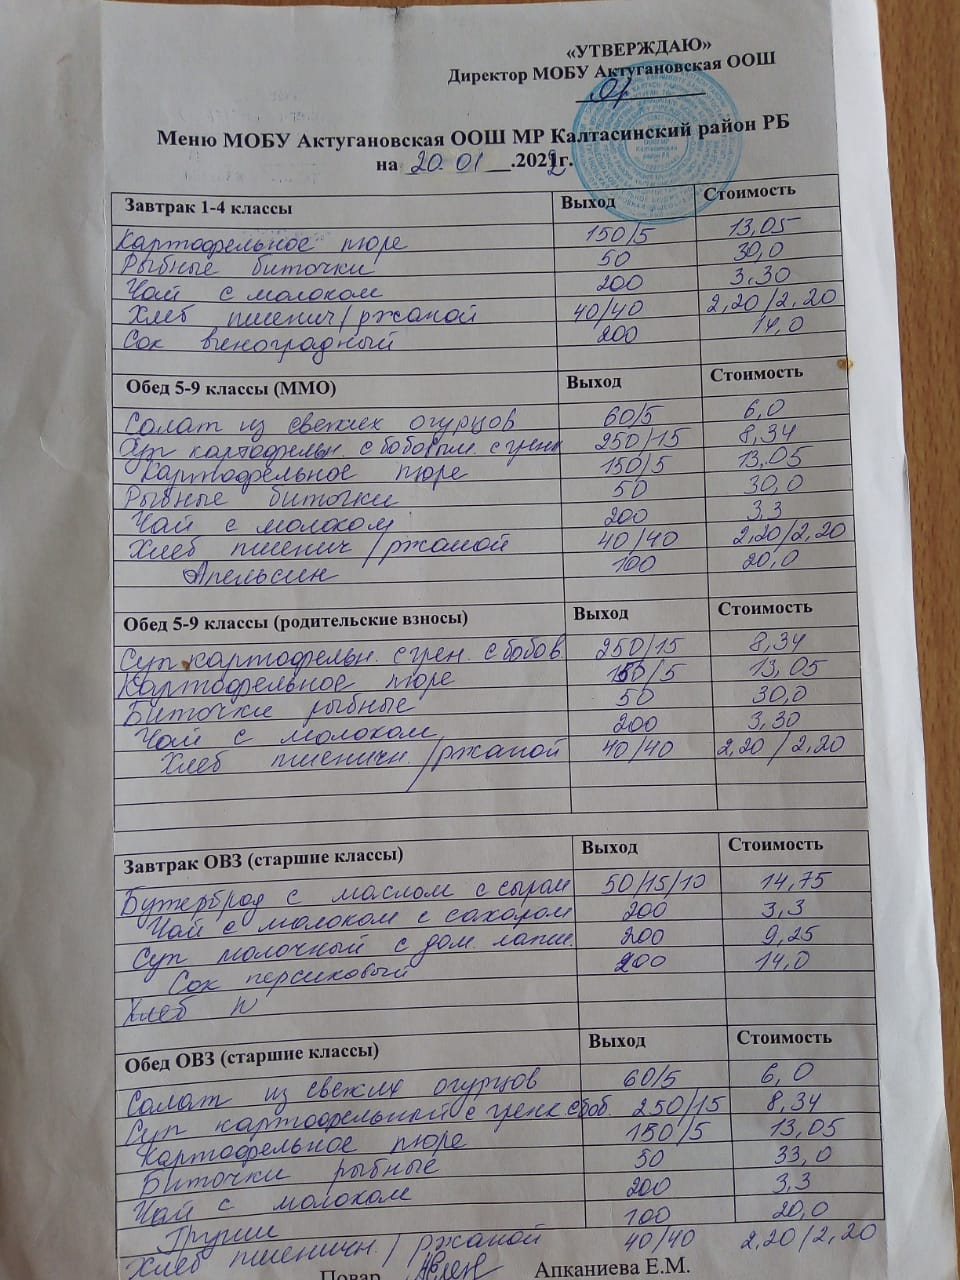 «УТВЕРЖДАЮ»
Директор МОБУ Актугановская ООШ
Меню МОБУ Актугановская ООШ МР Калтасинский район РБ
на 20.01 .2022г.
Завтрак 1-4 классы Выход Стоимость
Картофельное пюре 150/5 13,05
Рыбные биточки 50 30,0
Чай с молоком 200 3,30
Хлеб пшенич/ржаной 40/40 2,20/2,20
Сок виноградный 200 14,0
Обед 5-9 классы (ММО) Выход Стоимость
Салат из свежих огурцов 60/5 6,0
Суп картофельн. с бобовым. с грен 250/15 8,34
Картофельное пюре 150/5 13,05
Рыбные биточки 50 30,0
Чай с молоком 200 3,3
Хлеб пшенич/ржаной 40/40 2,20/2,20
Апельсин 100 20,0
Обед 5-9 классы (родительские взносы) Выход Стоимость
Суп картофельн. с грен. с бобов. 250/15 8,34
Картофельное пюре 150/5 13,05
Биточки рыбные 50 30,0
Чай с молоком 200 3,30
Хлеб пшеничн./ржаной 40/40 2,20/2,20
Завтрак ОВЗ (старшие классы) Выход Стоимость
Бутерброд с маслом с сыром 50/15/10 14,75
Чай с молоком с сахаром 200 3,3
Суп молочный с дом. лапш. 200 9,25
Сок персиковый 200 14,0
Хлеб п
Обед ОВЗ (старшие классы) Выход Стоимость
Салат из свежих огурцов 60/5 6,0
Суп картофельный с гренк. с боб. 250/15 8,34
Картофельное пюре 150/5 13,05
Биточки рыбные 50 33,0
Чай с молоком 200 3,3
Груши 100 20,0
Хлеб пшеничн./ржаной 40/40 2,20/2,20
Повар Апканиева Е.М.